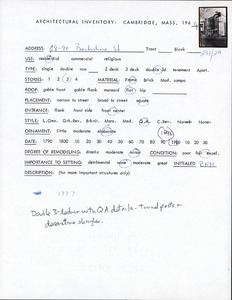 ARCHITECTURAL INVENTORY: CAMBRIDGE, MASS, 196
ADDRESS: 68-70 Berkshire St Tract Block
USE: residential commercial religious
TYPE: single double row 2 deck 3 deck double 3d tenement Apart.
STORIES: 1 2 3 4 MATERIAL: Frame Brick Mod. comps
ROOF: gable front gable flank mansard flat hip
PLACEMENT: narrow to street broad to street square
ENTRANCE: flank front front side center
STYLE: L.Geo. Grk.Rev. Brkt. Mans. Med. Q.A. C.Rev. None
ORNAMENT: little moderate elaborate
DATE: 1790 1800 10 20 30 40 50 60 70 80 90 1900 10 20 30
DEGREE OF REMODELING: drastic moderate minor CONDITION: poor fair excel.
IMPORTANCE TO SETTING: detrimental none moderate great INITIALED RNH
DESCRIPTION: (for more important structures only)
Double 3-decker with QA details - Turned posts &
decorative shingles.